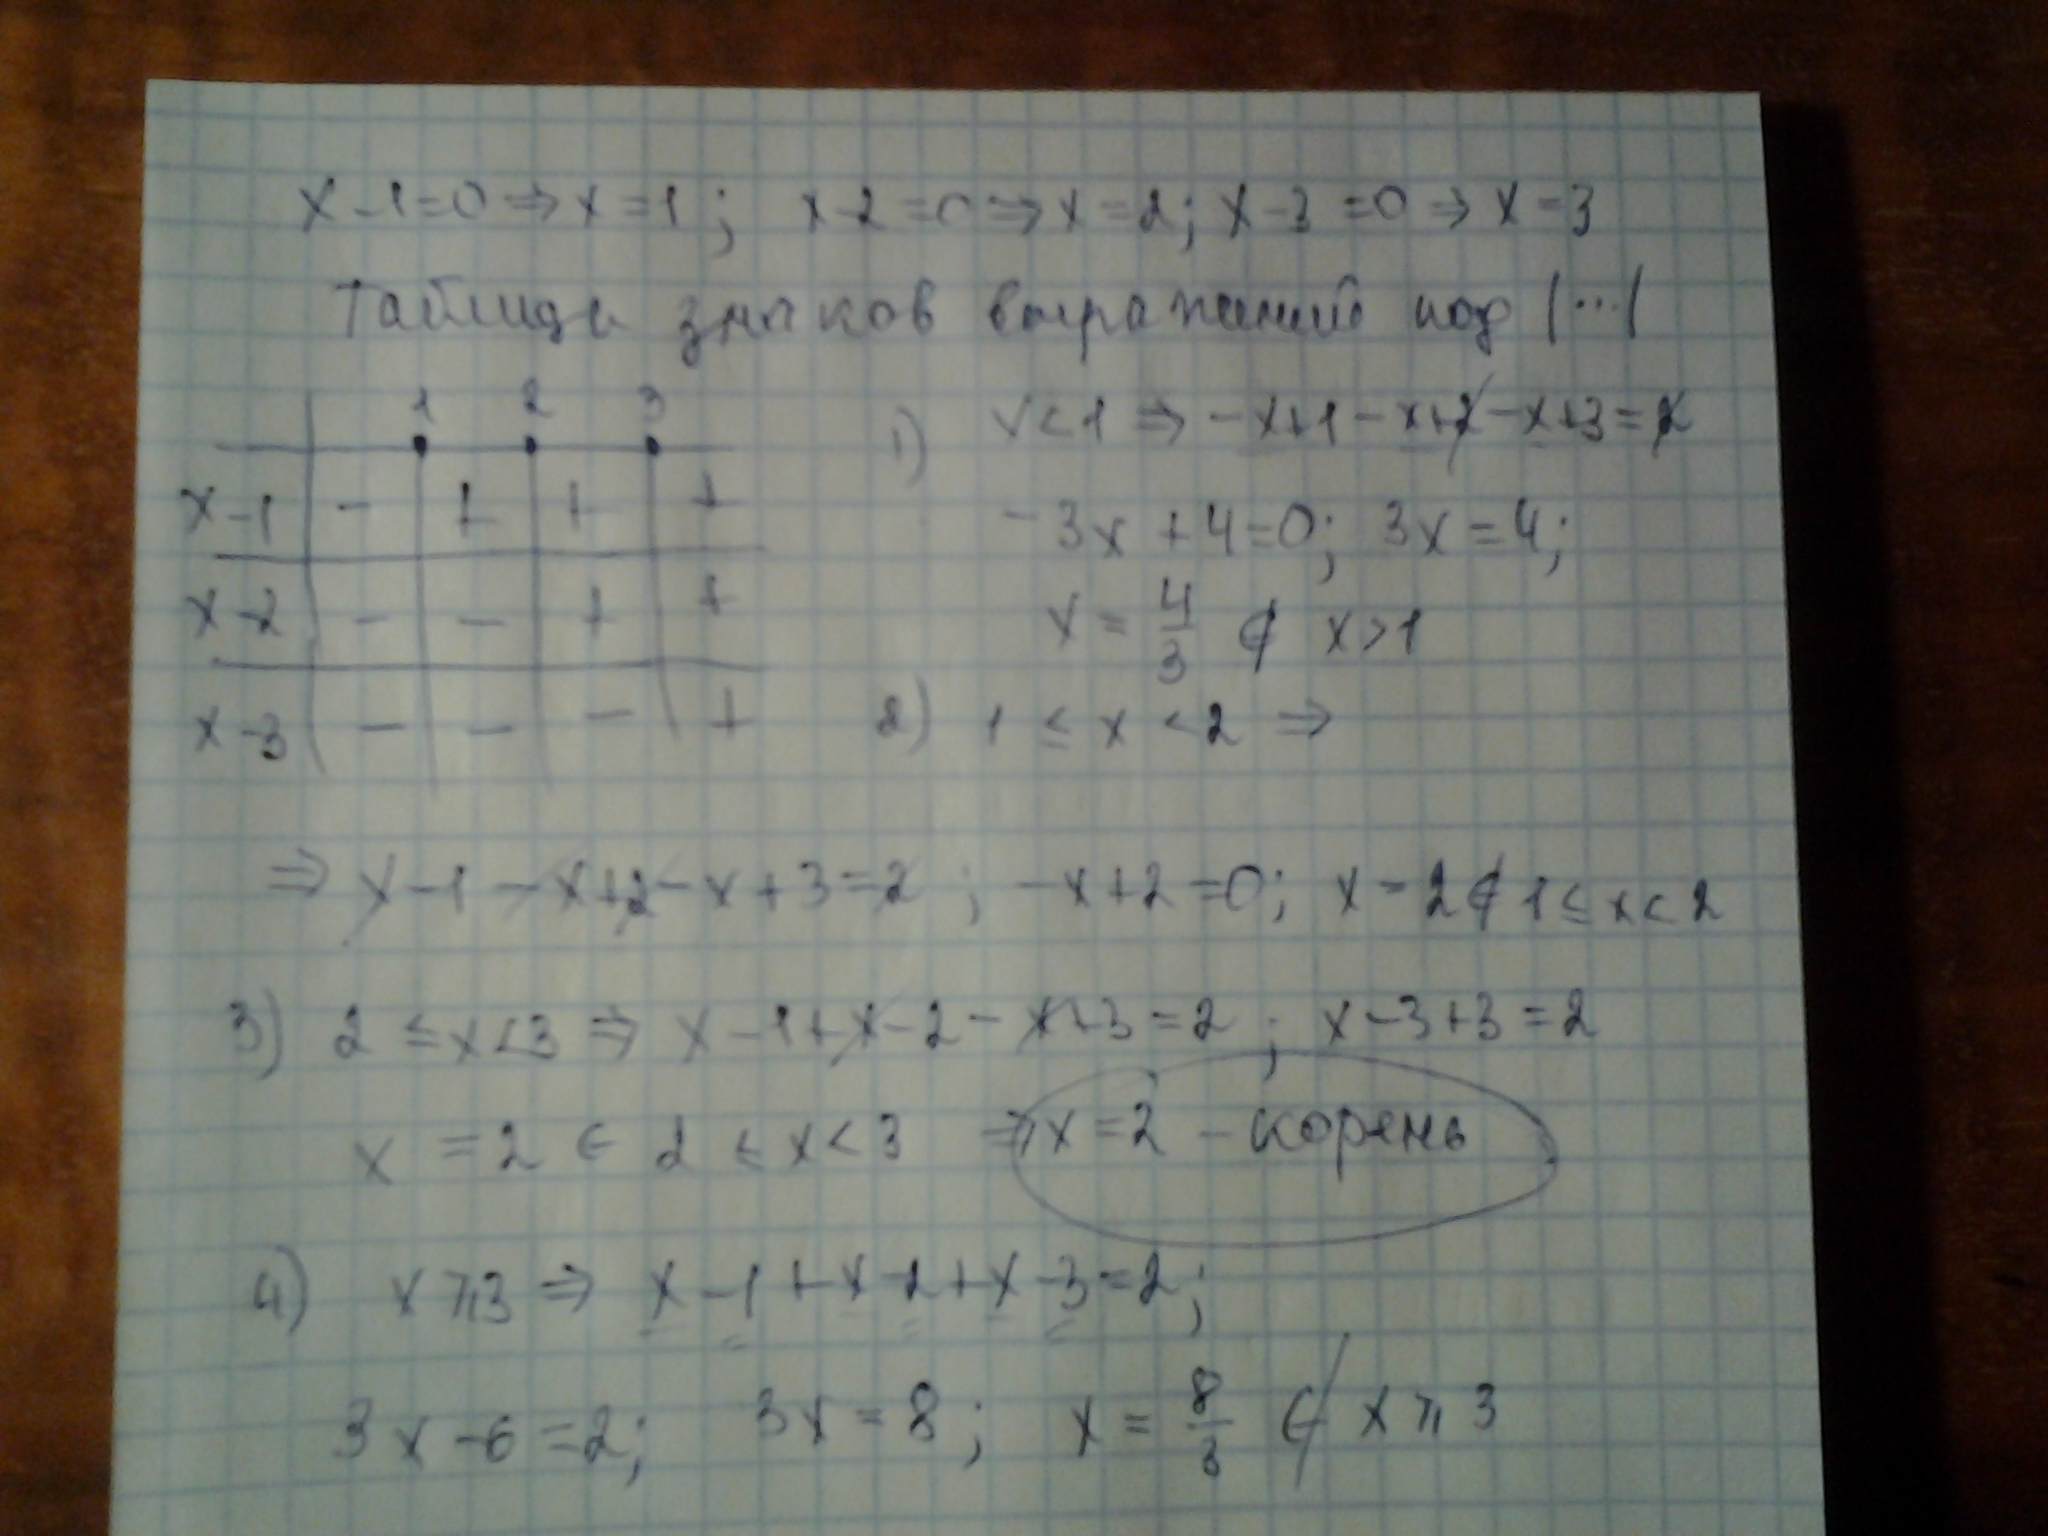 x-1=0 ⇒ x=1; x-2=0 ⇒ x=2; x-3=0 ⇒ x=3
Таблица знаков выражений под |...|
1 2 3
x-1 - + + +
x-2 - - + +
x-3 - - - +
1) x<1 ⇒ -x+1-x+2-x+3=2
-3x+4=0; 3x=4;
x = 4/3 ∉ x>1
2) 1 ≤ x < 2 ⇒
⇒ x-1-x+2-x+3=2; -x+2=0; x=2 ∉ 1≤x<2
3) 2≤x<3 ⇒ x-1+x-2-x+3=2; x-3+3=2
x=2 ∈ 2≤x<3 ⇒ x=2 - корень
4) x⩾3 ⇒ x-1+x-2+x-3=2;
3x-6=2; 3x=8; x = 8/3 ∉ x⩾3